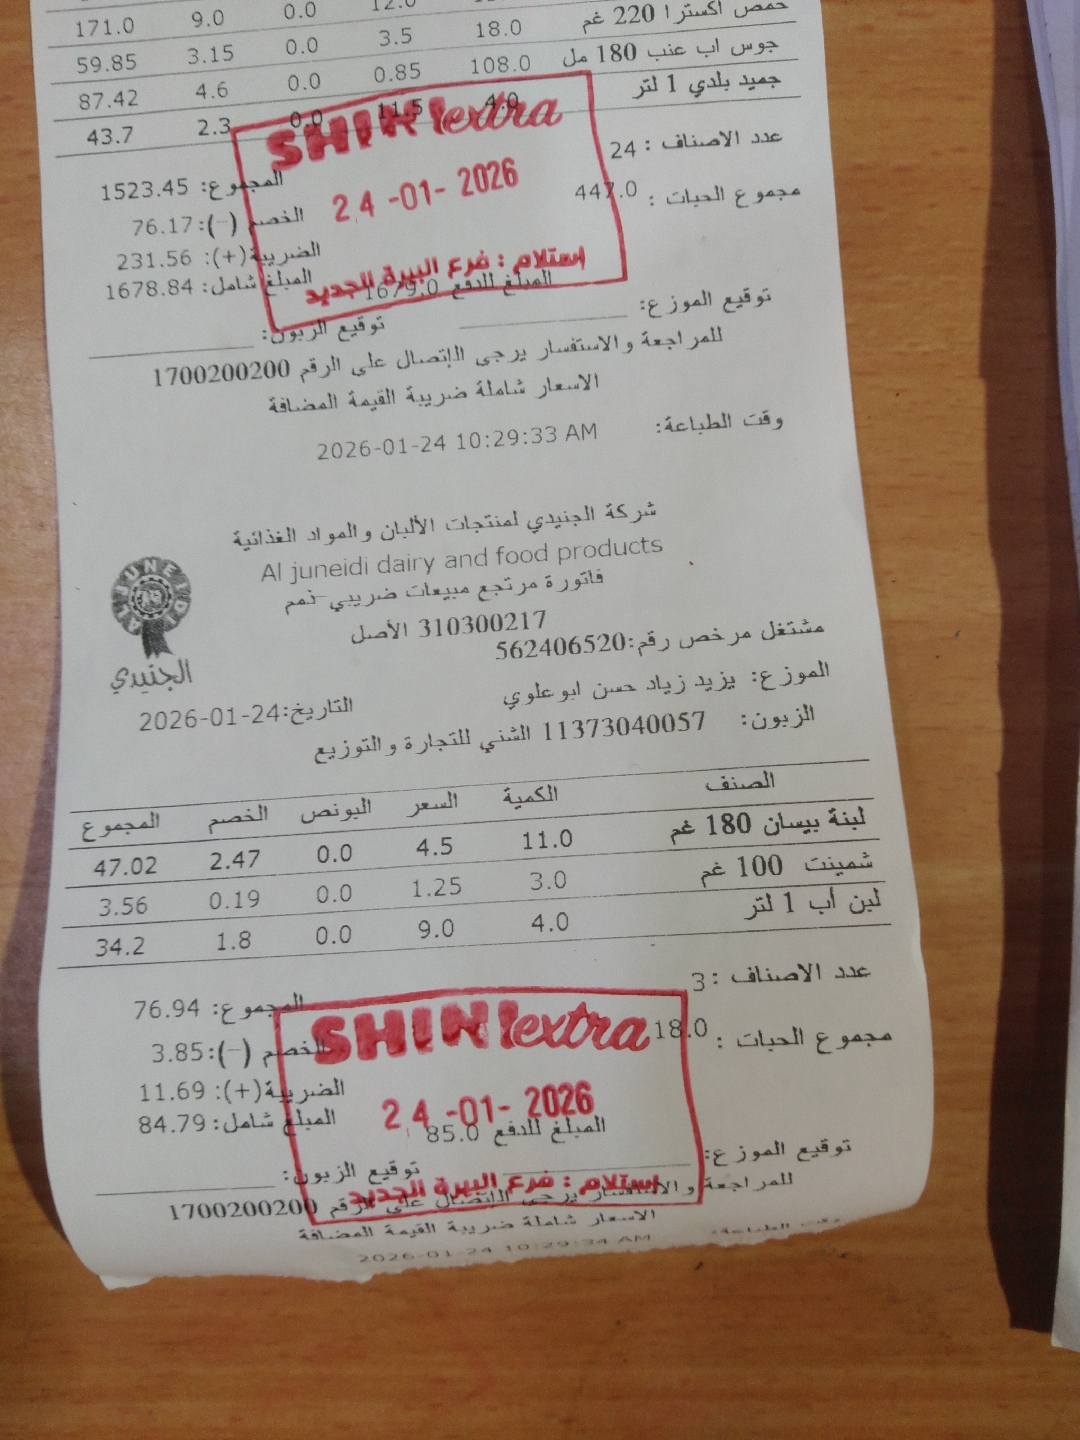 171.0 9.0 0.0 12.0
حمص اكسترا 220 غم 18.0 3.5 0.0 3.15 59.85
جوس اب عنب 180 مل 108.0 0.85 0.0 4.6 87.42
جميد بلدي 1 لتر 4.0 11.5 0.0 2.3 43.7
عدد الاصناف : 24
مجموع الحبات : 447.0
المجموع: 1523.45
الخصم (-): 76.17
الضريبة(+): 231.56
المبلغ شامل: 1678.84
المبلغ للدفع 1679.0
SHINI extra
24-01-2026
استلام : فرع البيرة الجديد
توقيع الموزع:
توقيع الزبون:
للمراجعة والاستفسار يرجى الإتصال على الرقم 1700200200
الاسعار شاملة ضريبة القيمة المضافة
وقت الطباعة: 2026-01-24 10:29:33 AM
شركة الجنيدي لمنتجات الألبان والمواد الغذائية
Al juneidi dairy and food products
فاتورة مرتجع مبيعات ضريبي-ذمم
310300217 الأصل
AL JUNEIDI
الجنيدي
مشتغل مرخص رقم:562406520
الموزع: يزيد زياد حسن ابوعلوي
التاريخ:2026-01-24
الزبون: 11373040057 الشني للتجارة والتوزيع
الصنف الكمية السعر البونص الخصم المجموع
لبنة بيسان 180 غم 11.0 4.5 0.0 2.47 47.02
شمينت 100 غم 3.0 1.25 0.0 0.19 3.56
لبن أب 1 لتر 4.0 9.0 0.0 1.8 34.2
عدد الاصناف : 3
مجموع الحبات : 18.0
المجموع: 76.94
الخصم (-): 3.85
الضريبة(+): 11.69
المبلغ شامل: 84.79
المبلغ للدفع 85.0
SHINI extra
24-01-2026
استلام : فرع البيرة الجديد
توقيع الموزع:
توقيع الزبون:
للمراجعة والاستفسار يرجى الإتصال على الرقم 1700200200
الاسعار شاملة ضريبة القيمة المضافة
وقت الطباعة: 2026-01-24 10:29:34 AM